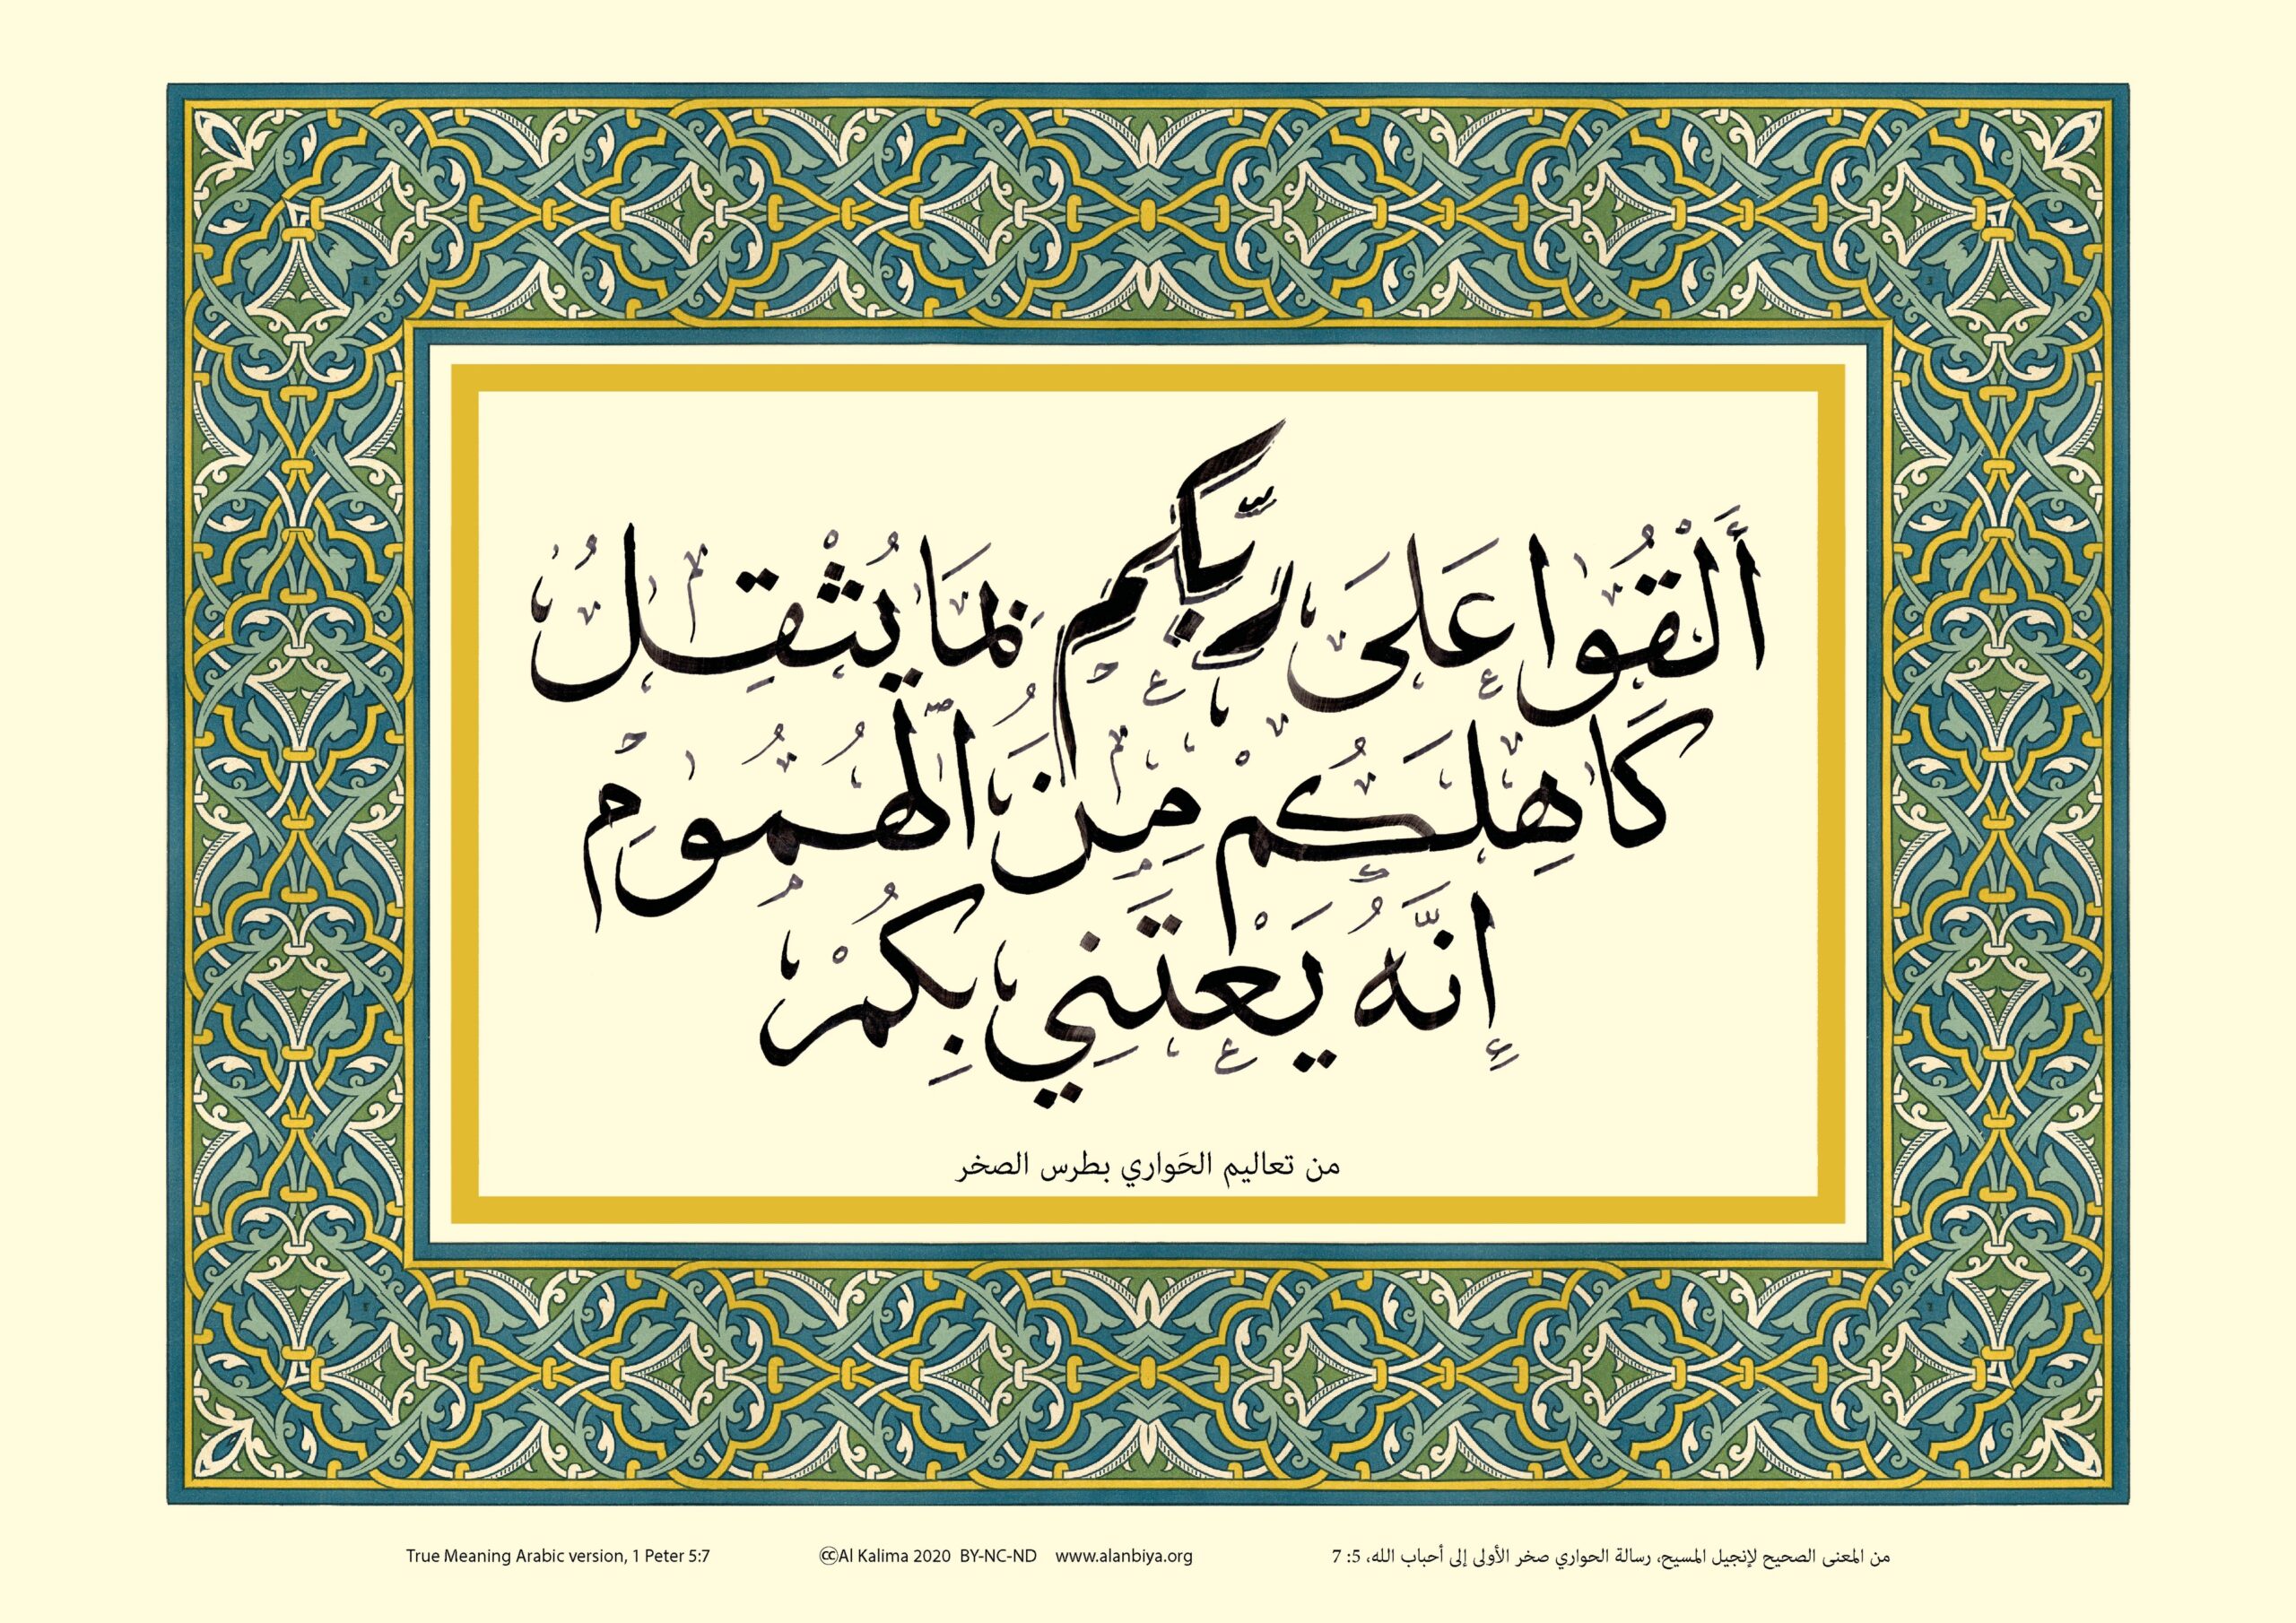 أَلْقُوا عَلَى رَبِّكُم مَا يُثْقِلُ
كَاهِلَكُمْ مِنَ الْهُمُومِ
إِنَّهُ يَعْتَنِي بِكُمْ
من تعاليم الحَواري بطرس الصخر
True Meaning Arabic version, 1 Peter 5:7 Al Kalima 2020 BY-NC-ND www.alanbiya.org من المعنى الصحيح لإنجيل المسيح، رسالة الحواري صخر الأولى إلى أحباب الله، 5: 7